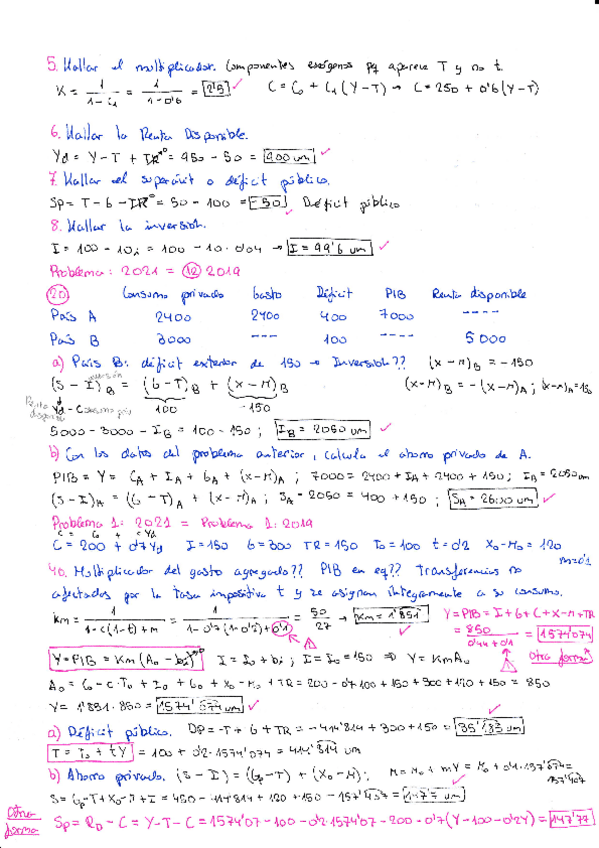 5. Hallar el multiplicador. Componentes exógenos pq aparece T y no t.
K = 1/(1-c1) = 1/(1-0'6) = 2'5 ✓ C = C0 + C1 (Y-T) → C = 250 + 0'6 (Y-T)
6. Hallar la Renta Disponible.
Yd = Y - T + TR = 950 - 50 = 900 um ✓
7. Hallar el superávit o déficit público.
Sp = T - G - TR = 50 - 100 = -50 Déficit público
8. Hallar la inversión.
I = 100 - 10i = 100 - 10 · 0'04 → I = 99'6 um ✓
Problema: 2021 = 12 2019
20 Consumo privado Gasto Déficit PIB Renta disponible
País A 2400 2400 400 7000 ----
País B 3000 --- 100 ---- 5000
a) País B: déficit exterior de 150 → Inversión?? (X-M)B = -150
(S - I)B = (G-T)B + (X-M)B (X-M)B = -(X-M)A ;
Renta disponible Yd - C 100 -150
5000 - 3000 - IB = 100 - 150 ; IB = 2050 um ✓
b) Con los datos del problema anterior, calcula el ahorro privado de A.
PIB = Y = CA + IA + GA + (X-M)A ; 7000 = 2400 + IA + 2400 + 150 ; = 2050um
(S - I)A = (G-T)A + (X-M)A ; SA - 2050 = 400 + 150 ; SA = 2600 um ✓
Problema 1: 2021 = Problema 1: 2019
C = C0 + cYd
C = 200 + 0'7Yd I = 150 G = 300 TR = 150 T0 = 100 t = 0'2 X0 - M0 = 120
m = 0'1
40. Multiplicador del gasto agregado?? PIB en eq?? Transferencias no
afectadas por la tasa impositiva t y se asignan íntegramente a su consumo.
Km = 1/(1-c(1-t)+m) = 1/(1-0'7(1-0'2)+0'1) = 50/27 → Km = 1'851 ✓
Y = PIB = I + G + C + X - M + TR
= 850/(0'44+0'1) = 1574'074
Otra forma
Y = PIB = Km (A0 - bi) I = I0 + bi ; I = I0 = 150 ⇒ Y = Km A0
A0 = C0 - c·T0 + I0 + G0 + X0 - M0 + TR = 200 - 0'7·100 + 150 + 300 + 120 + 150 = 850
Y = 1'851 · 850 = 1574'074 um ✓
a) Déficit público. DP = -T + G + TR = -414'814 + 300 + 150 = 35'183 um
T = T0 + tY = 100 + 0'2 · 1574'074 = 414'814 um
b) Ahorro privado. (S - I) = (Gp - T) + (X0 - M) ; M = M0 + mY = M0 + 0'1·157'4074 =
157'407
S = Gp - T + X0 - M + I = 450 - 414'814 + 120 + 150 - 157'407 =
Otra forma
Sp = RD - C = Y - T - C = 1574'07 - 100 - 0'2·1574'07 - 200 - 0'7(Y - 100 - 0'2Y) = 147'77